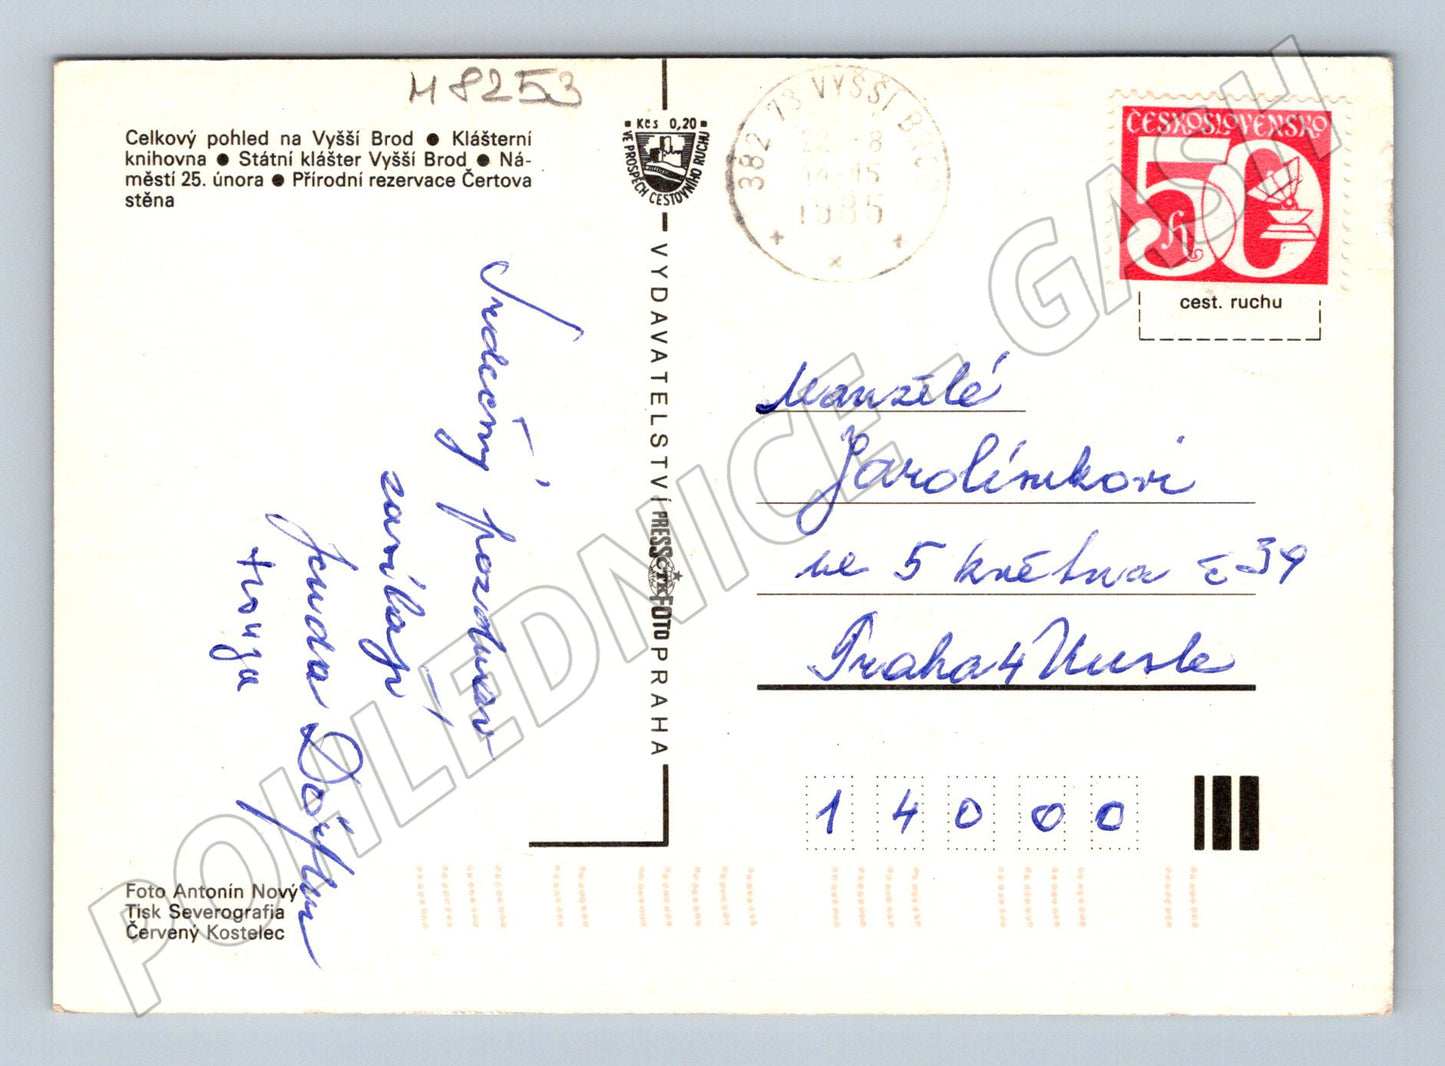 M 8253
Celkový pohled na Vyšší Brod ● Klášterní
knihovna ● Státní klášter Vyšší Brod ● Ná-
městí 25. února ● Přírodní rezervace Čertova
stěna
Kčs 0,20
VE PROSPĚCH CESTOVNÍHO RUCHU
382 73 VYŠŠÍ BROD
22.-8
14-15
1985
ČESKOSLOVENSKO
50 h
cest. ruchu
VYDAVATELSTVÍ PRESSFOTO PRAHA
ČTK
Srdečný pozdrav
zasílají
Jenda
Manželé
Jarolímkovi
5 května č 39
Praha 4 Nusle
14000
Foto Antonín Nový
Tisk Severografia
Červený Kostelec
POHLEDNICE - GASH